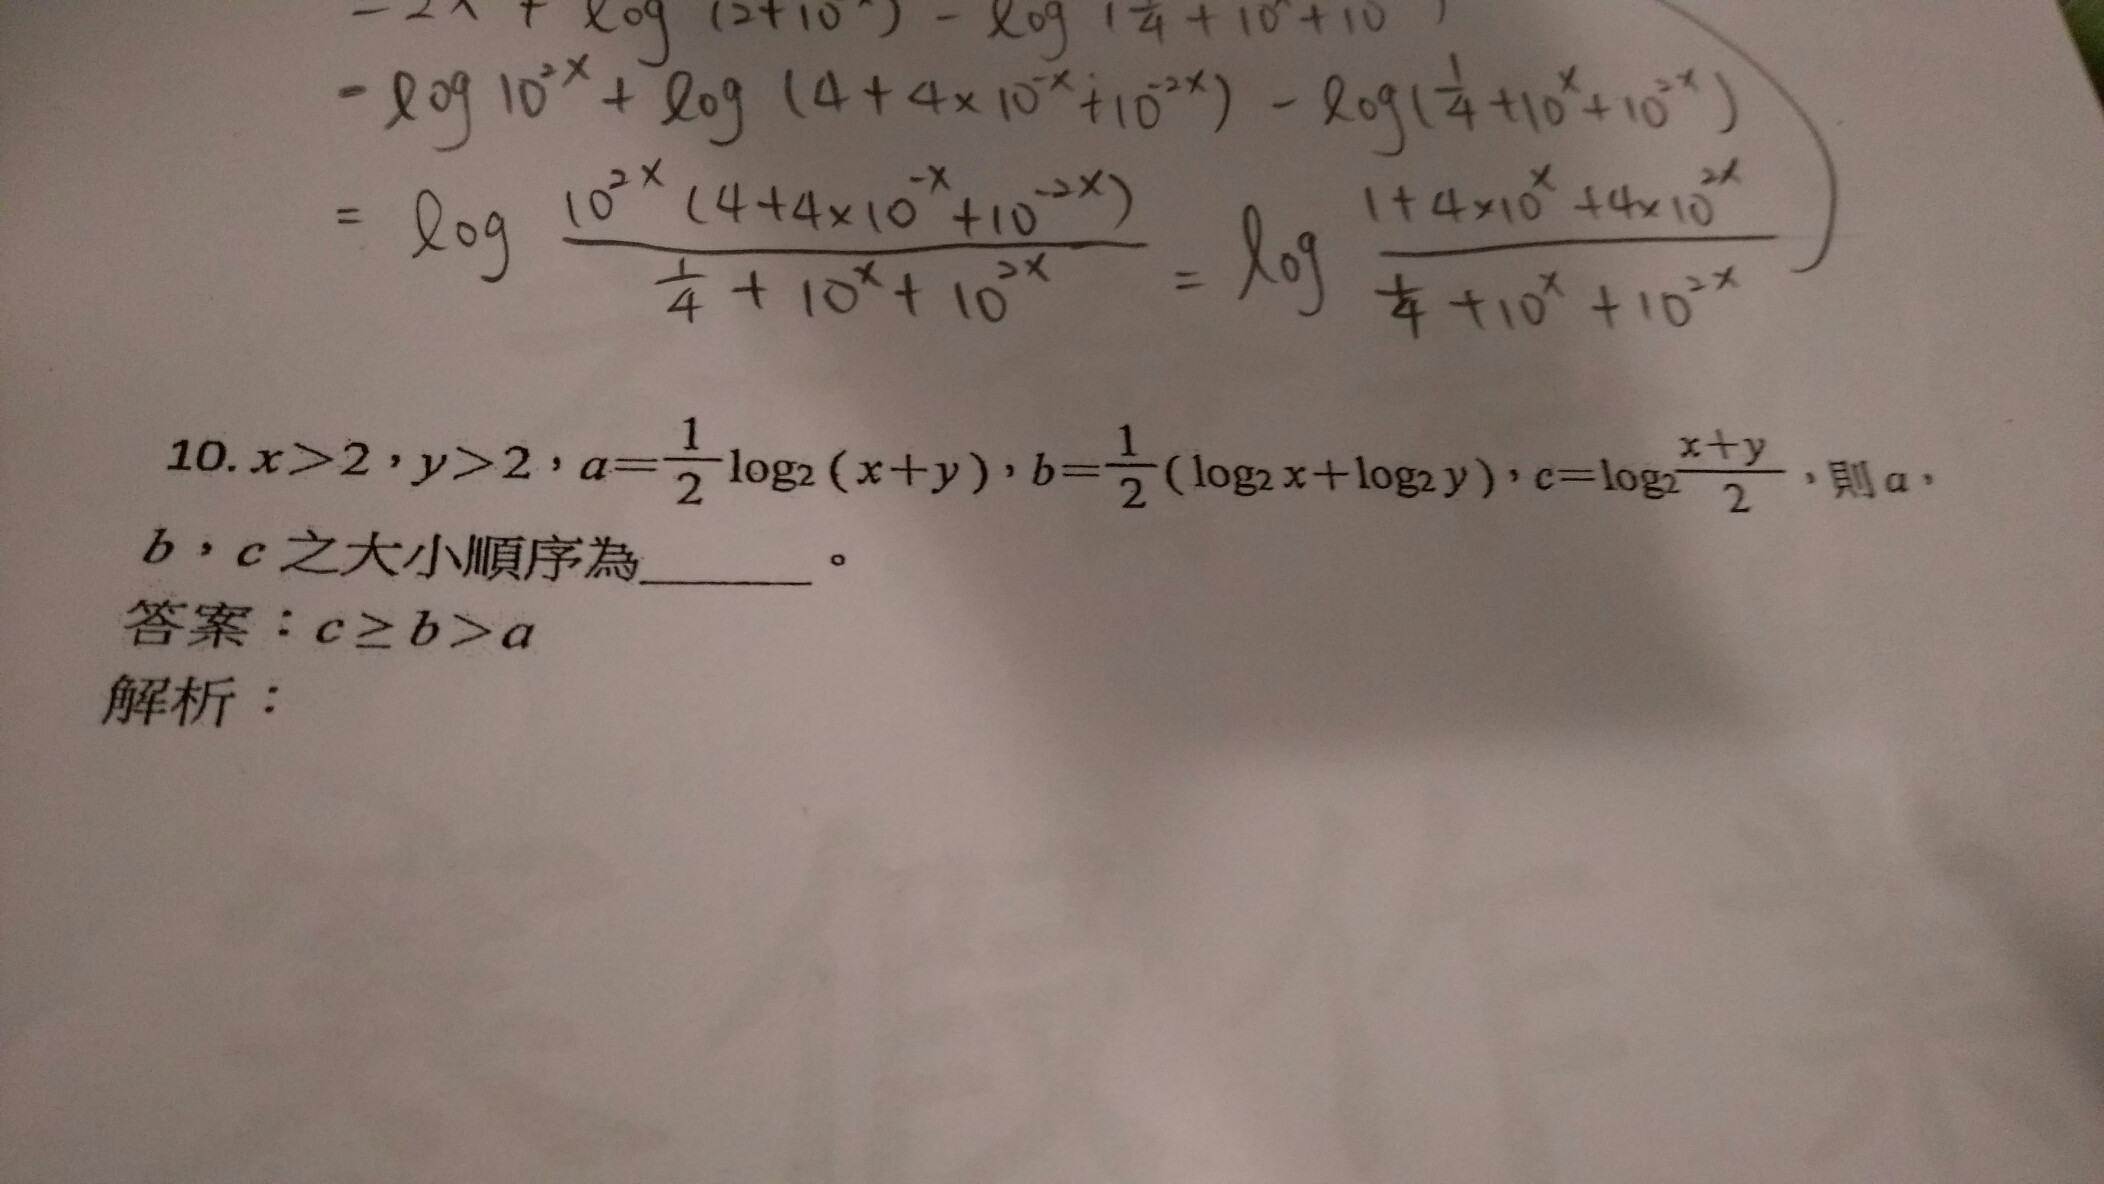 - 2x + log (2+10^x) - log (1/4 + 10^x + 10
- log 10^2x + log (4 + 4×10^-x + 10^-2x) - log (1/4 + 10^x + 10^2x)
= log 10^2x (4+4×10^-x + 10^-2x) / (1/4 + 10^x + 10^2x) = log (1 + 4×10^x + 4×10^2x) / (1/4 + 10^x + 10^2x)
10. x>2，y>2，a=1/2 log₂(x+y)，b=1/2(log₂x+log₂y)，c=log₂ (x+y)/2，則a，
b，c之大小順序為______。
答案：c≥b>a
解析：